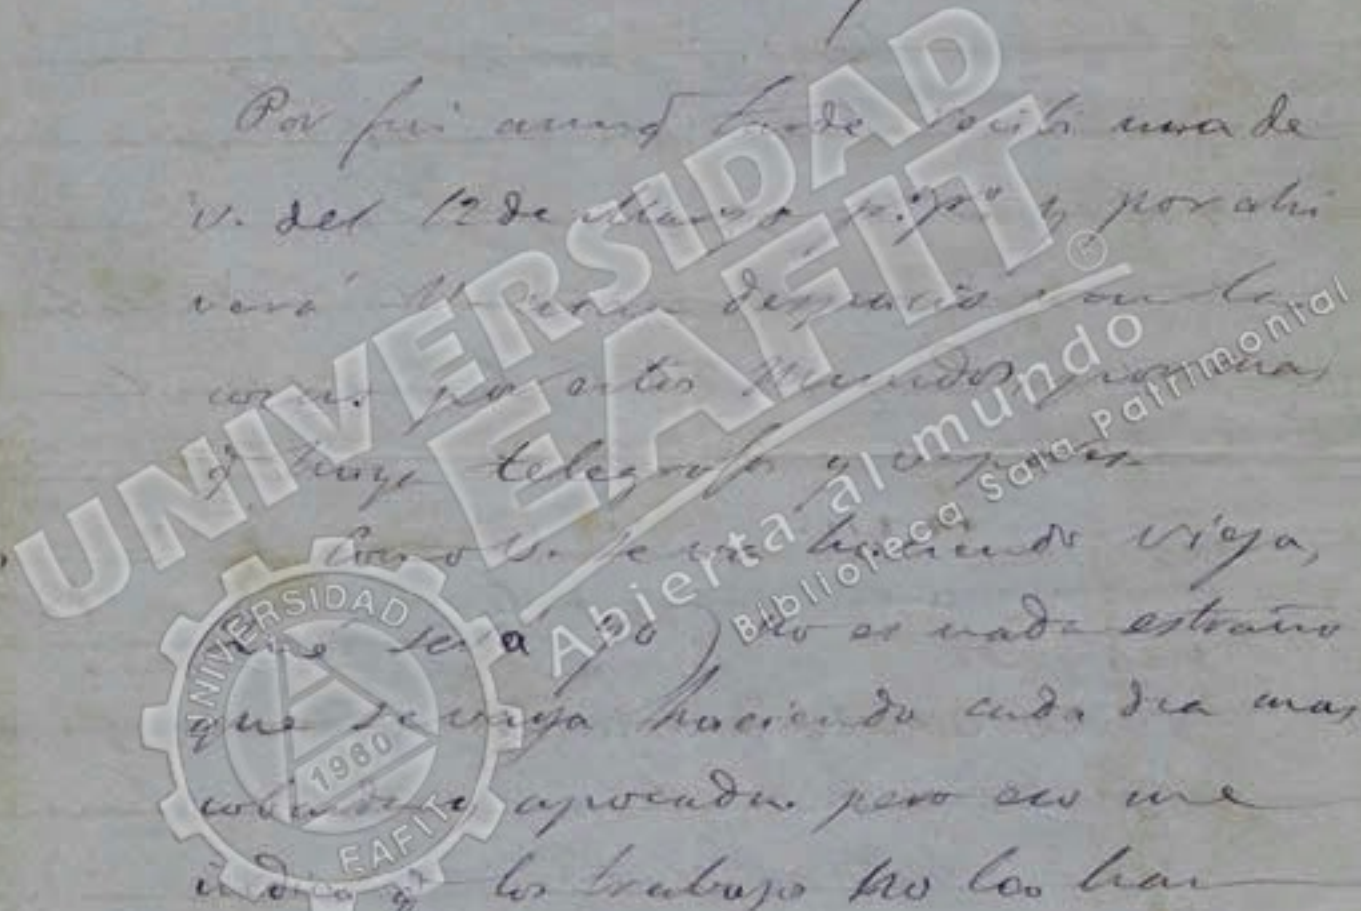 Por fin aunq tarde recibi una de
V. del 12 de Marzo pº pº y por ahi
verá V. cuan despacio van las
por estos mundos, por mas
q haya telegrafos y vapores
Como V. se va haciendo vieja,
(que será yo) no es nada estraño
que se vaya haciendo cada dia mas
cobarde y apocada. pero eso me
indica q los trabajos no los han
UNIVERSIDAD
EAFIT
®
Abierta al mundo
Biblioteca Sala Patrimonial
UNIVERSIDAD
1960
EAFIT